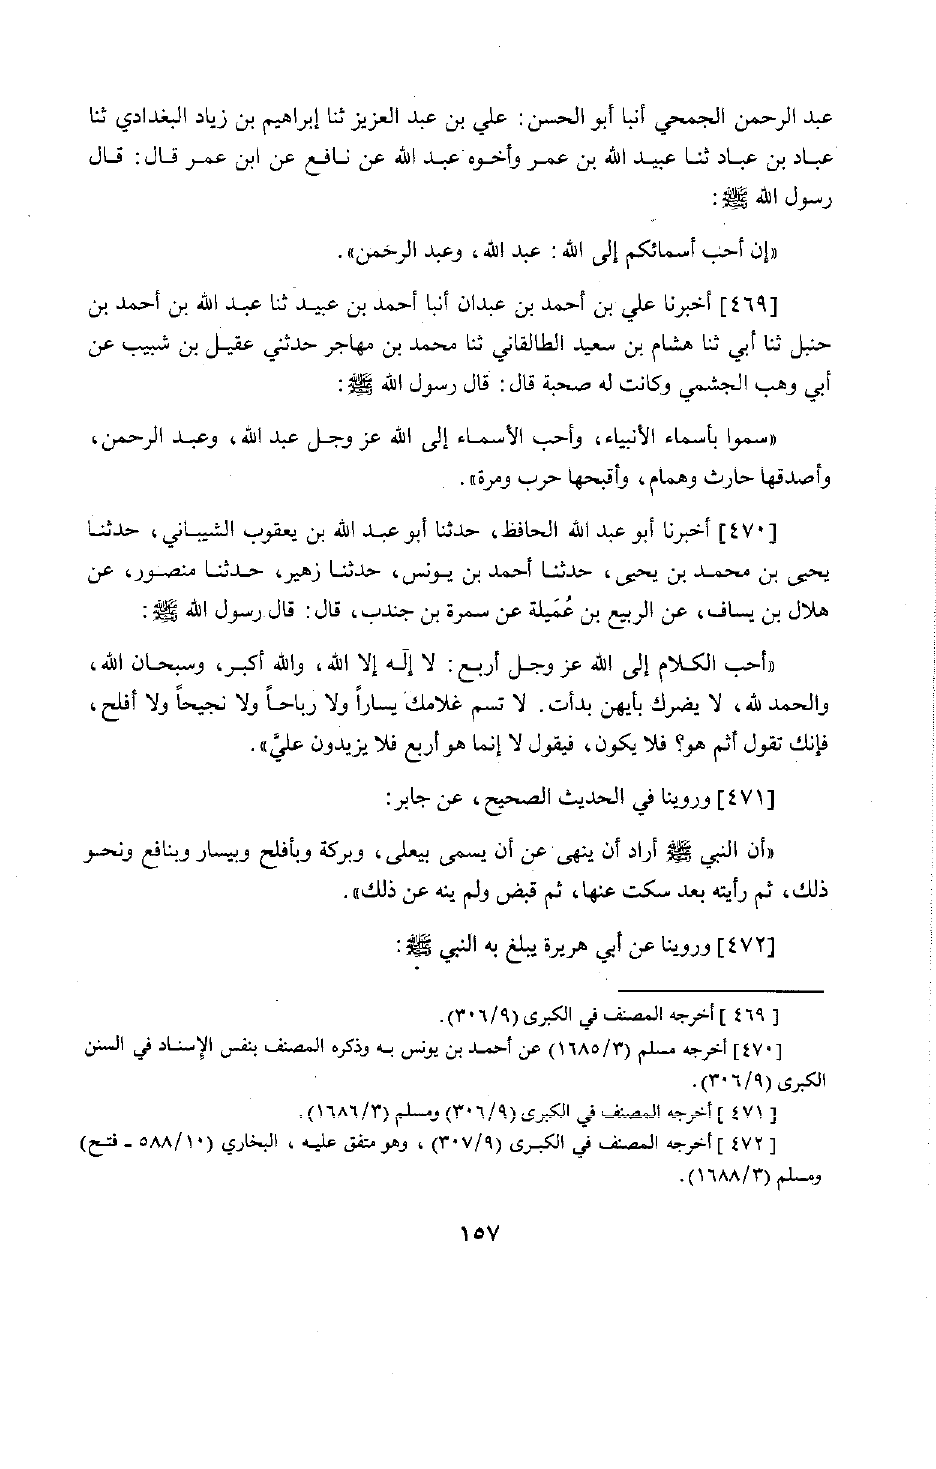 عبد الرحمن الجمحي أنبا أبو الحسن: علي بن عبد العزيز ثنا إبراهيم بن زياد البغدادي ثنا
عباد بن عباد ثنا عبيد الله بن عمر وأخوه عبد الله عن نافع عن ابن عمر قال: قال
رسول الله ﷺ:
«إن أحب أسمائكم إلى الله: عبد الله، وعبد الرحمن».
[٤٦٩] أخبرنا علي بن أحمد بن عبدان أنبا أحمد بن عبيد ثنا عبد الله بن أحمد بن
حنبل ثنا أبي ثنا هشام بن سعيد الطالقاني ثنا محمد بن مهاجر حدثني عقيل بن شبيب عن
أبي وهب الجشمي وكانت له صحبة قال: قال رسول الله ﷺ:
«سموا بأسماء الأنبياء، وأحب الأسماء إلى الله عز وجل عبد الله، وعبد الرحمن،
وأصدقها حارث وهمام، وأقبحها حرب ومرة».
[٤٧٠] أخبرنا أبو عبد الله الحافظ، حدثنا أبو عبد الله بن يعقوب الشيباني، حدثنا
يحيى بن محمد بن يحيى، حدثنا أحمد بن يونس، حدثنا زهير، حدثنا منصور، عن
هلال بن يساف، عن الربيع بن عُمَيلة عن سمرة بن جندب، قال: قال رسول الله ﷺ:
«أحب الكلام إلى الله عز وجل أربع: لا إلٓه إلا الله، والله أكبر، وسبحان الله،
والحمد لله، لا يضرك بأيهن بدأت. لا تسم غلامك يساراً ولا رباحاً ولا نجيحاً ولا أفلح،
فإنك تقول أثم هو؟ فلا يكون، فيقول لا إنما هو أربع فلا يزيدون عليَّ».
[٤٧١] وروينا في الحديث الصحيح، عن جابر:
«أن النبي ﷺ أراد أن ينهى عن أن يسمى بيعلى، وبركة وبأفلح وبيسار وبنافع ونحو
ذلك، ثم رأيته بعد سكت عنها، ثم قبض ولم ينه عن ذلك».
[٤٧٢] وروينا عن أبي هريرة يبلغ به النبي ﷺ:
[٤٦٩] أخرجه المصنف في الكبرى (٣٠٦/٩).
[٤٧٠] أخرجه مسلم (١٦٨٥/٣) عن أحمد بن يونس به وذكره المصنف بنفس الإسناد في السنن
الكبرى (٣٠٦/٩).
[٤٧١] أخرجه المصنف في الكبرى (٣٠٦/٩) ومسلم (١٦٨٦/٣).
[٤٧٢] أخرجه المصنف في الكبرى (٣٠٧/٩)، وهو متفق عليه، البخاري (٥٨٨/١٠ - فتح)
ومسلم (١٦٨٨/٣).
١٥٧